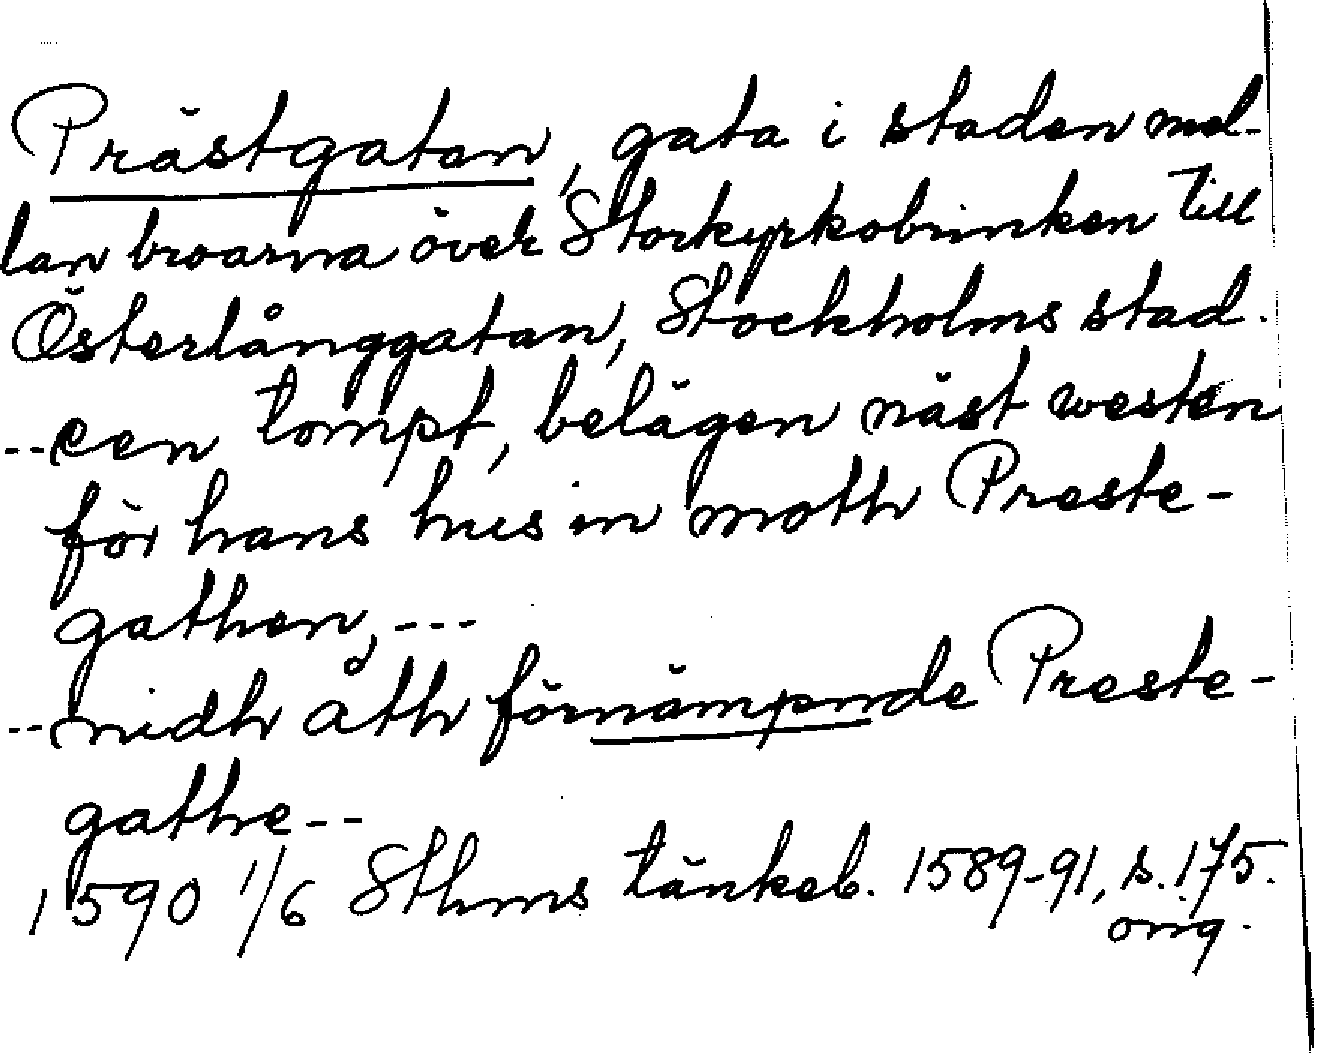 Prästgatan, gata i staden mel-
lan broarna över Storkyrkobrinken till
Österlånggatan, Stockholms stad.
--een tompt, belägen näst westen
för hans hus in moth Preste-
gathen, ---
--nidh åth förnämpnde Preste-
gathe--
1590 1/6 Sthms tänkeb. 1589-91, s. 175.
orig.